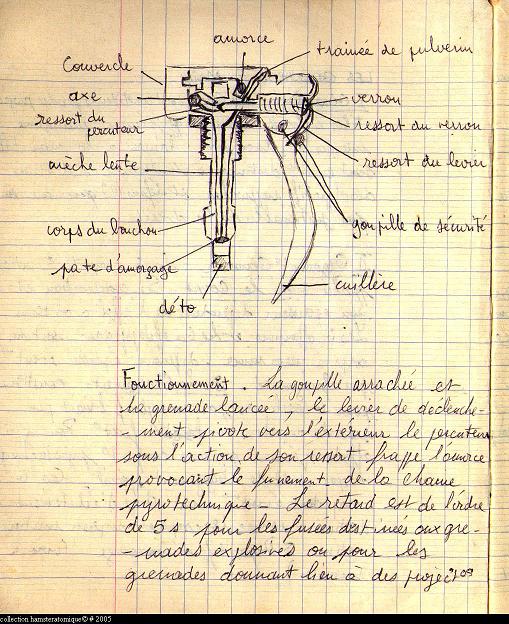 amorce
trainée de pulvérin
Couvercle
axe
verrou
ressort du
percuteur
ressort du verrou
ressort du levier
mèche lente
corps du bouchon
goupille de sécurité
pate d'amorçage
cuillère
déto
Fonctionnement. La goupille arrachée et
la grenade lancée, le levier de déclenche-
-ment pivote vers l'extérieur le percuteur
sous l'action de son ressort frappe l'amorce
provocant le de la chaine
pyrotechnique - Le retard est de l'ordre
de 5 s pour les fusées destinées aux gre-
-nades explosives ou pour les
grenades donnant lieu à des project°ns
collection hamsteratomique© # 2005